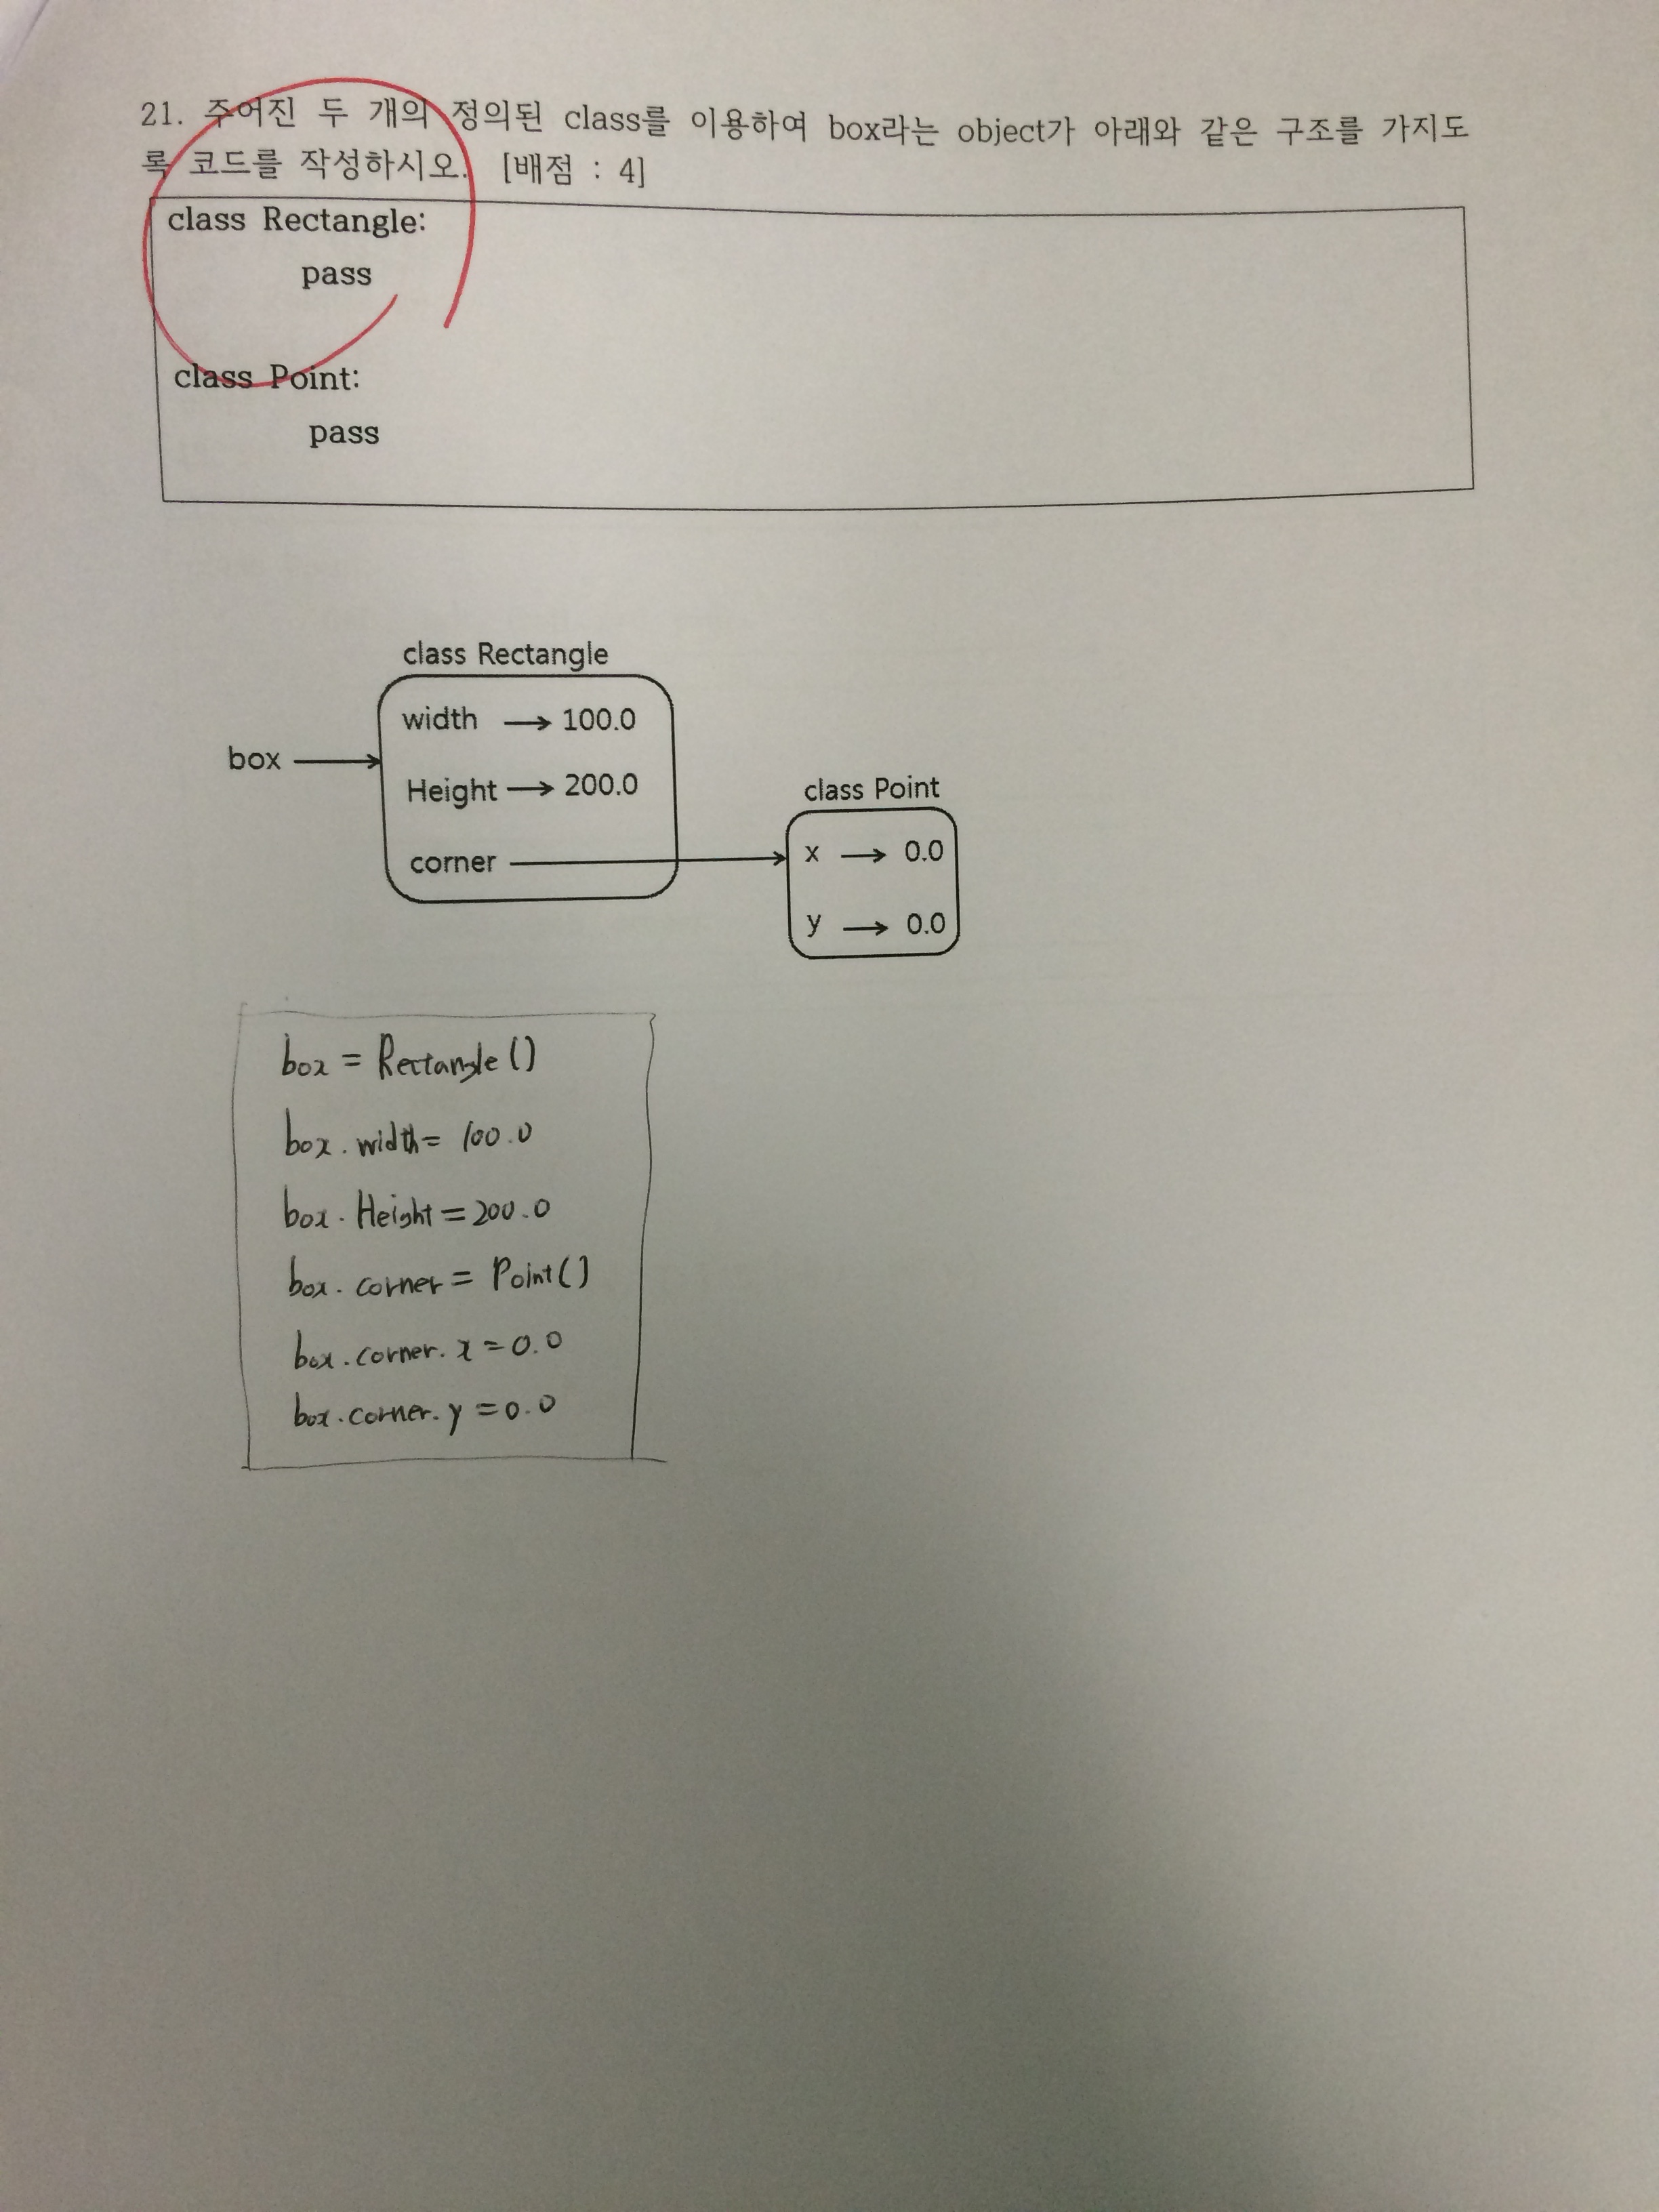 21. 주어진 두 개의 정의된 class를 이용하여 box라는 object가 아래와 같은 구조를 가지도
록 코드를 작성하시오. [배점 : 4]
class Rectangle:
pass
class Point:
pass
class Rectangle
width → 100.0
box →
Height → 200.0
class Point
corner →
x → 0.0
y → 0.0
box = Rectangle()
box.width = 100.0
box.Height = 200.0
box.corner = Point()
box.corner.x = 0.0
box.corner.y = 0.0